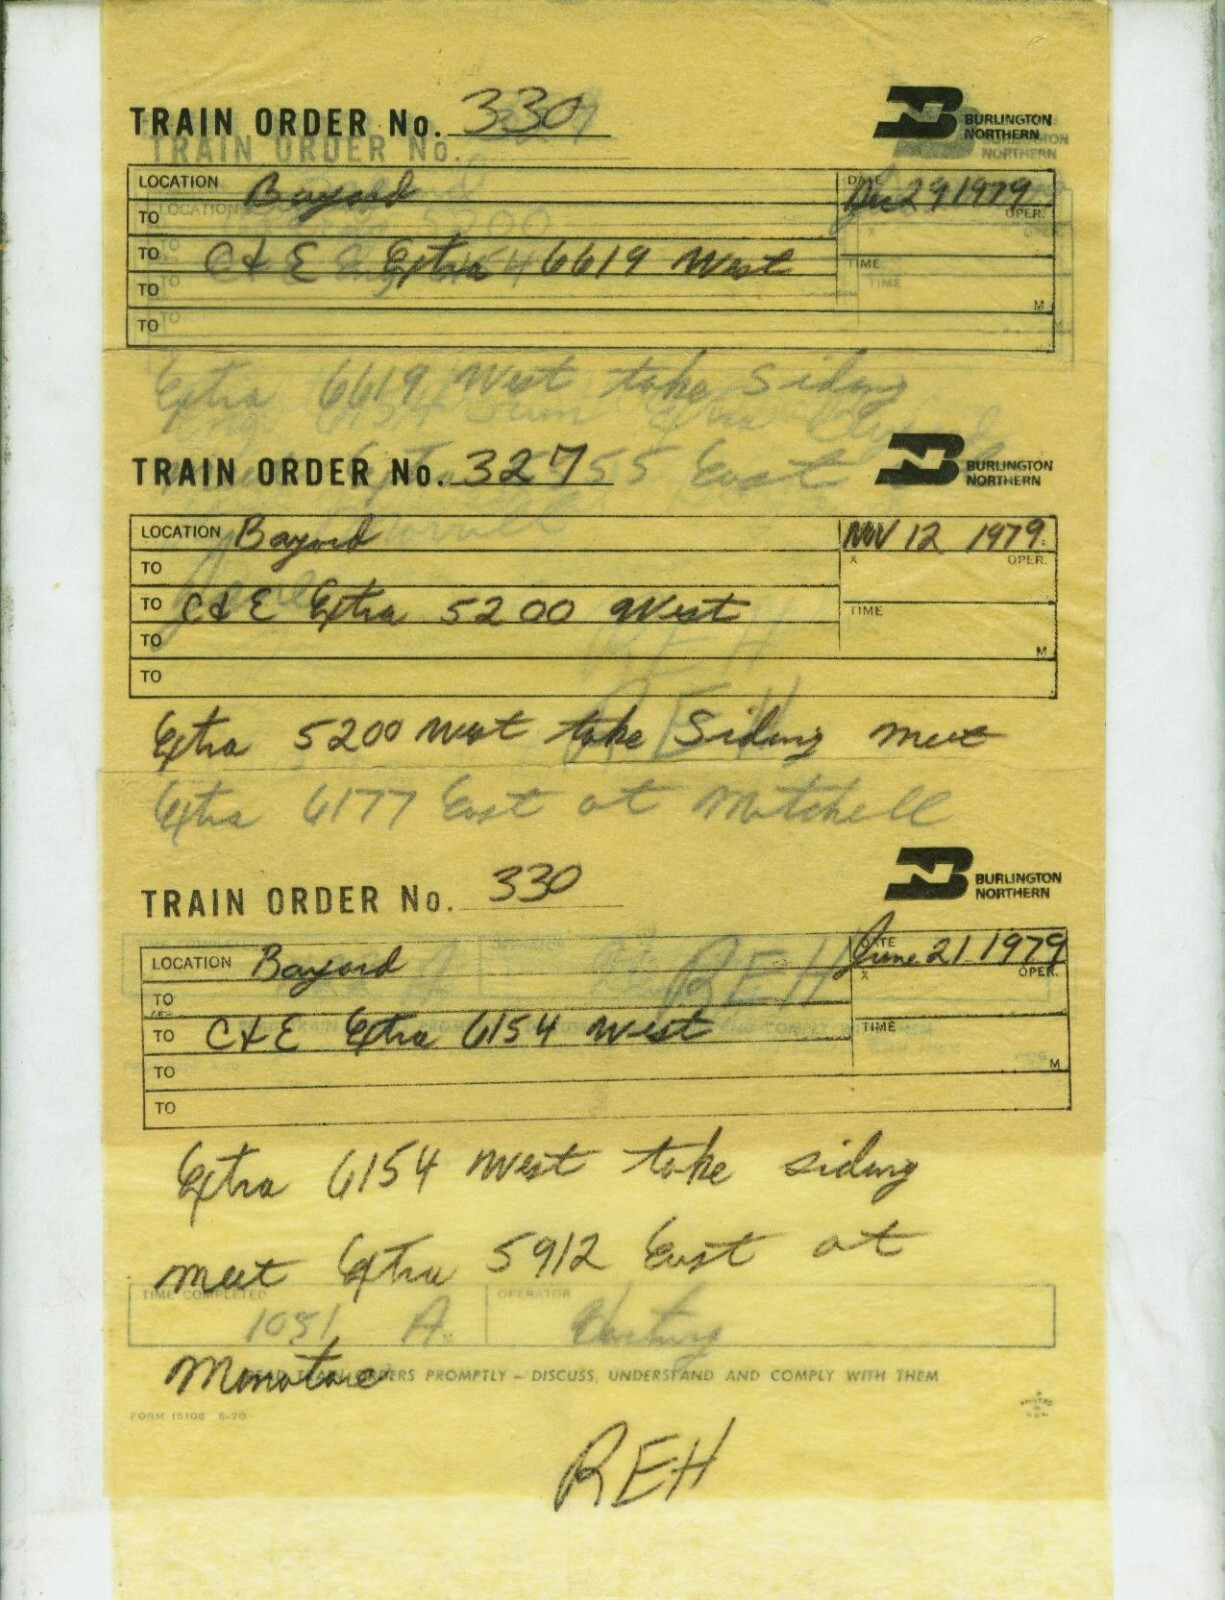 TRAIN ORDER No. 330
BURLINGTON
NORTHERN
LOCATION Bayard
DATE
Dec 29 1979
TO
OPER.
TO C & E Extra 6619 West
TIME
TO
M
TO
Extra 6619 West take siding
TRAIN ORDER No. 327
55 East
BURLINGTON
NORTHERN
LOCATION Bayard
NOV 12 1979
TO
X OPER.
TO C & E Extra 5200 West
TIME
TO
M
TO
Extra 5200 West take Siding meet
Extra 6177 East at Mitchell
TRAIN ORDER No. 330
BURLINGTON
NORTHERN
LOCATION Bayard
DATE
June 21 1979
REH
TO
X OPER.
TO C & E Extra 6154 West
TIME
TO
M
TO
Extra 6154 West take siding
meet Extra 5912 East at
TIME COMPLETED
1051 A M
OPERATOR
Hartung
Minatare
READ TRAIN ORDERS PROMPTLY – DISCUSS, UNDERSTAND AND COMPLY WITH THEM
FORM 15108 6-70
REH